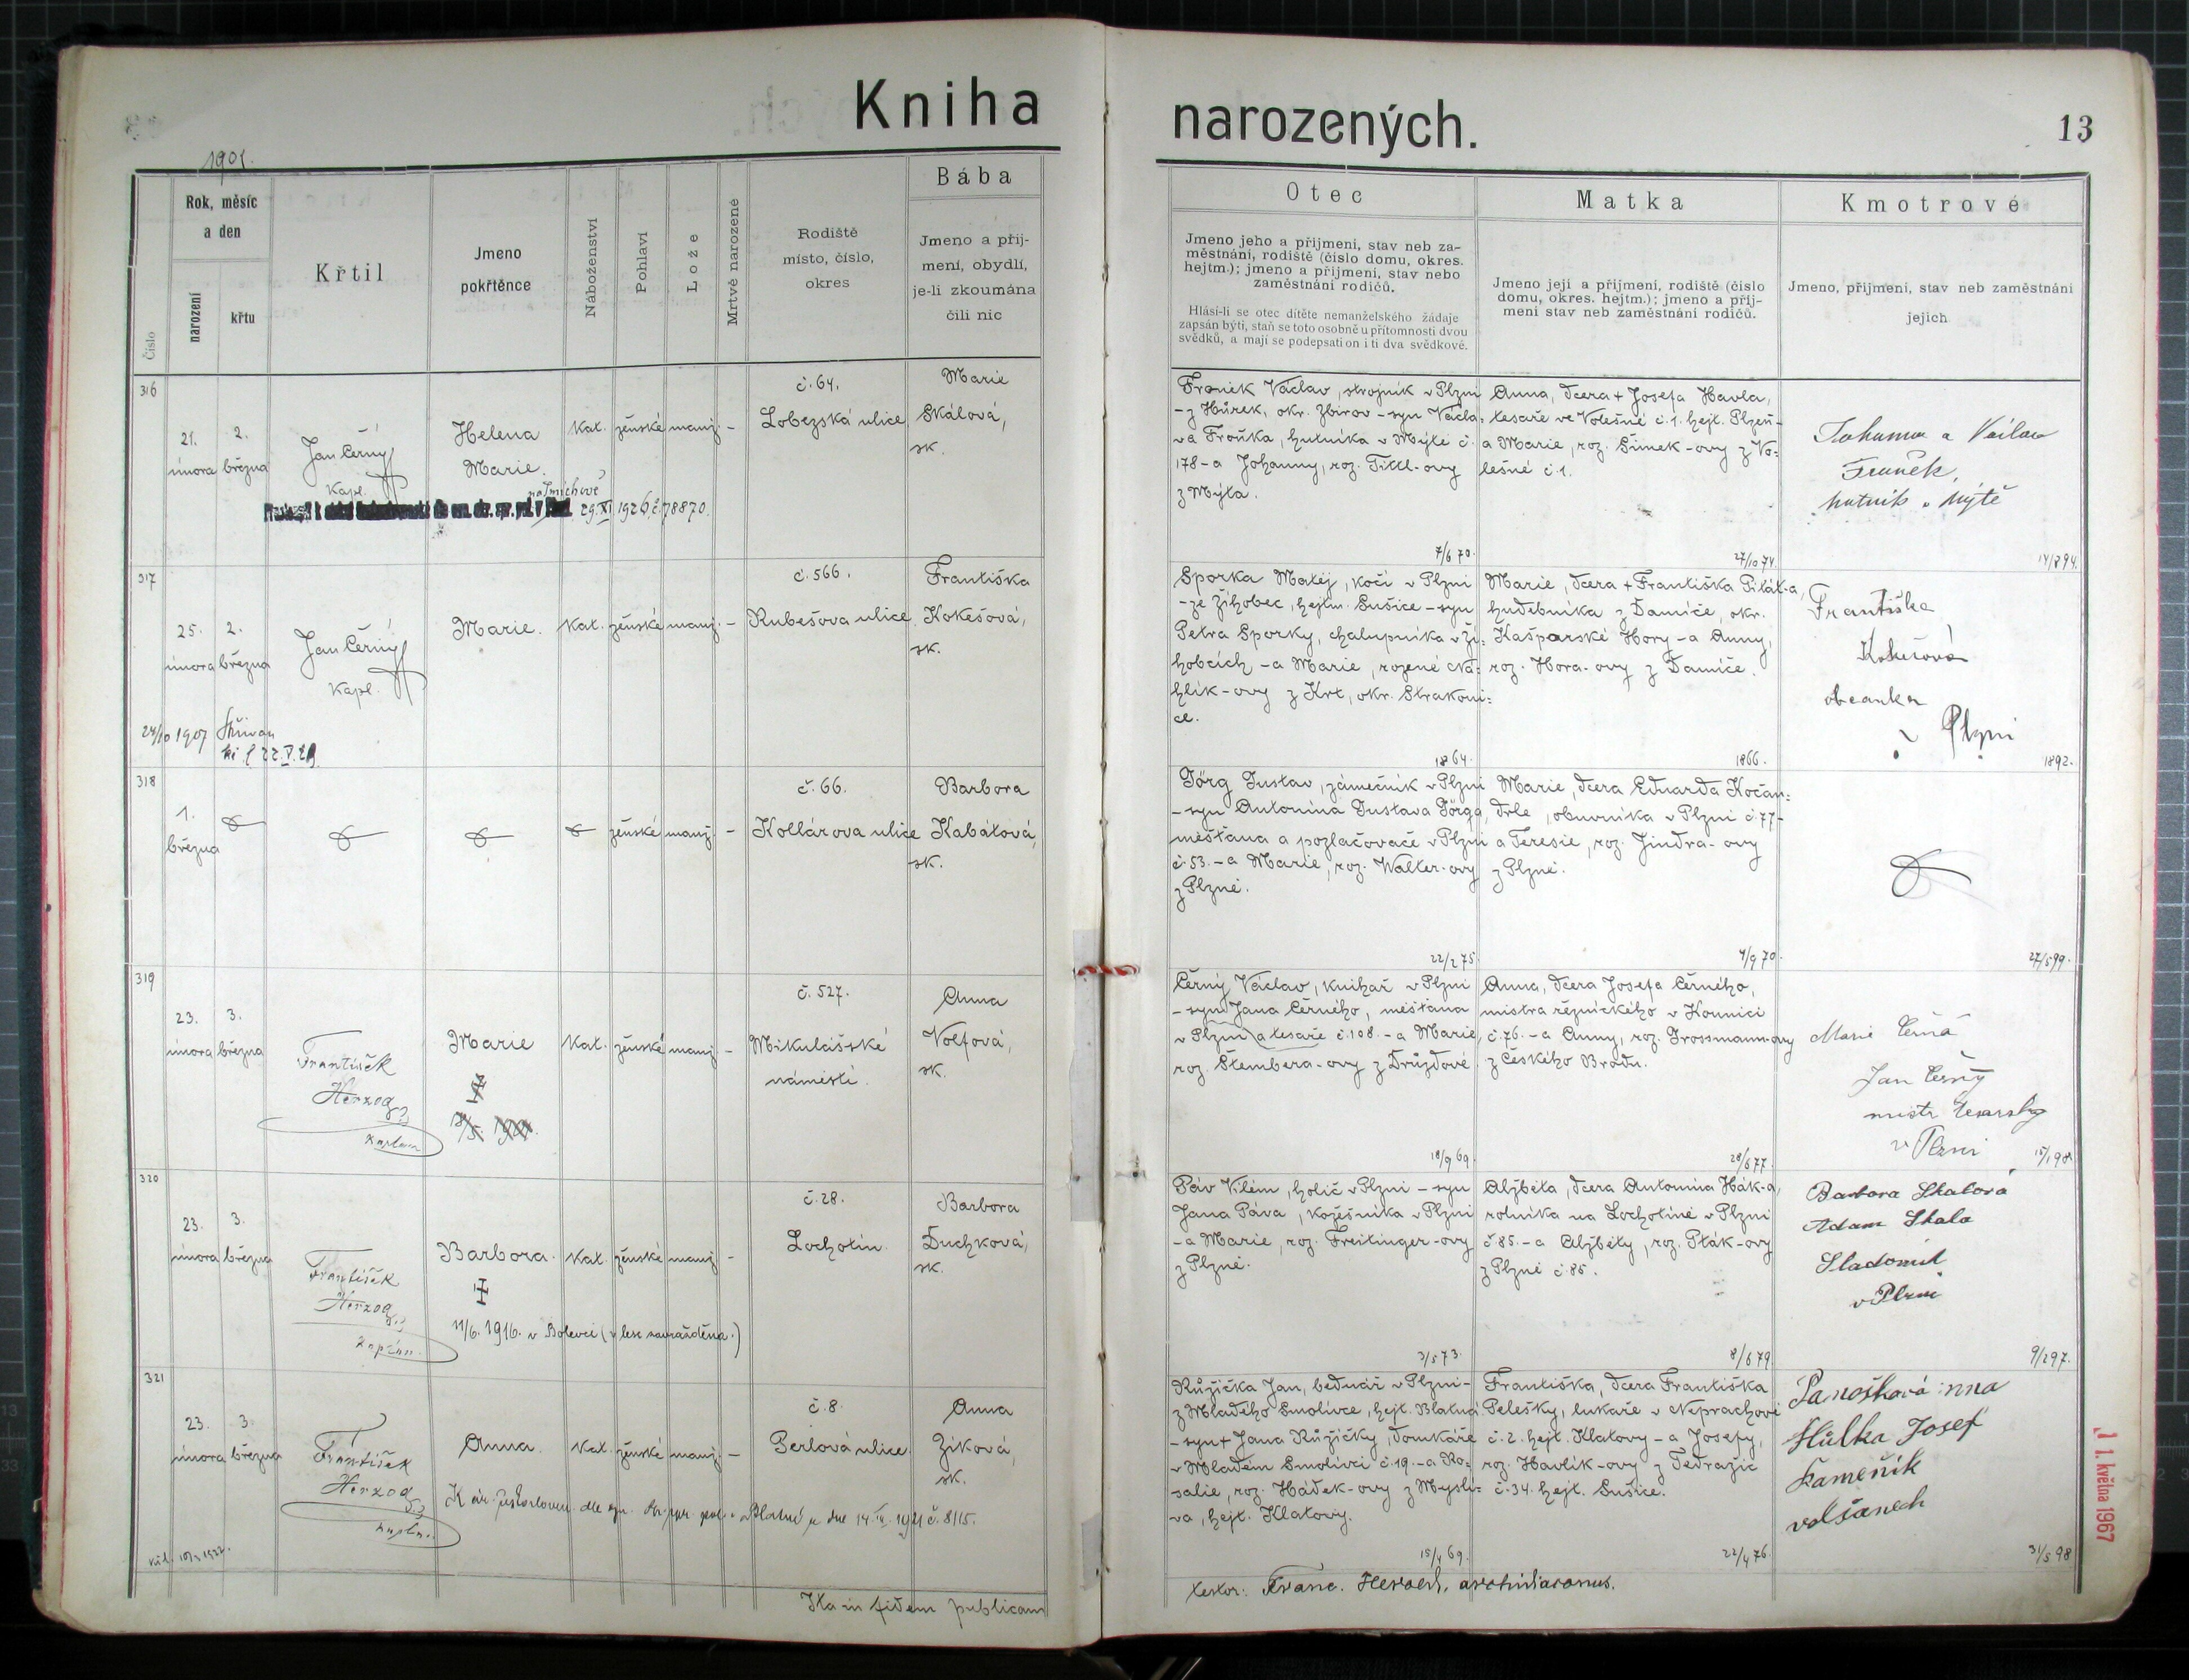 Kniha
narozených.
13
1901.
Číslo
Rok, měsíc
a den
narození
křtu
Křtil
Jmeno
pokřtěnce
Náboženství
Pohlaví
Lože
Mrtvě narozené
Rodiště
místo, číslo,
okres
Bába
Jmeno a příj-
mení, obydlí,
je-li zkoumána
čili nic
Otec
Jmeno jeho a příjmení, stav neb za-
městnání, rodiště (číslo domu, okres.
hejtm.); jmeno a příjmení, stav nebo
zaměstnání rodičů.
Hlásí-li se otec dítěte nemanželského žádaje
zapsán býti, staň se toto osobně u přítomnosti dvou
svědků, a mají se podepsati on i ti dva svědkové.
Matka
Jmeno její a příjmení, rodiště (číslo
domu, okres. hejtm.); jmeno a příj-
mení stav neb zaměstnání rodičů.
Kmotrové
Jmeno, příjmení, stav neb zaměstnání
jejich
316
21.
února
2.
března
Jan Černý
kapl.
Helena
Marie.
kat.
ženské
manž.
–
č. 64.
Lobezská ulice
Marie
Skálová,
zk.
na Smíchově
29. XI 1926, č. 78870.
Froněk Václav, strojník v Plzni
– z Hůrek, okr. Zbirov – syn Václa-
va Froňka, hutníka v Mýtě č.
178 – a Johanny, roz. Tittl-ovy
z Mýta.
7/6 70.
Anna, dcera + Josefa Havla,
tesaře ve Volešné č. 1. hejt. Plzeň –
a Marie, roz. Šimek-ovy z Vo-
lešné č. 1.
27/10 74.
Johanna a Václav
Froněk,
hutník v Mýtě
14/894.
317
25.
února
2.
března
Jan Černý
kapl.
Marie.
kat.
ženské
manž.
–
č. 566.
Rubešova ulice
Františka
Kokešová,
zk.
24/10 1907
22. V. 21
Sporka Matěj, kočí v Plzni
– ze Žihobec, hejtm. Sušice – syn
Petra Sporky, chalupníka v Ži-
hobcích – a Marie, rozené Na-
hlík-ovy z Krt, okr. Strakoni-
ce.
1864.
Marie, dcera + Františka Piláta,
hudebníka z Damíče, okr.
Kašperské Hory – a Anny,
roz. Hora-ovy z Damíče.
1866.
Františka
Kokešová
občanka
v Plzni
1892.
318
1.
března
ženské
manž.
–
č. 66.
Kollárova ulice
Barbora
Kabátová,
zk.
Jörg Gustav, zámečník v Plzni
– syn Antonína Gustava Jörga,
měšťana a pozlačovače v Plzni
č. 53. – a Marie, roz. Walter-ovy
z Plzně.
22/2 75.
Marie, dcera Eduarda Kočan-
drle, obuvníka v Plzni č. 77 –
a Teresie, roz. Jindra-ovy
z Plzně.
4/9 70.
27/5 99.
319
23.
února
3.
března
František
Herzog
kaplan
Marie
kat.
ženské
manž.
–
č. 527.
Mikulášské
náměstí.
Anna
Volfová,
zk.
Černý Václav, knihař v Plzni
– syn Jana Černého, měšťana
v Plzni a tesaře č. 108. – a Marie,
roz. Štembera-ovy z Družďové.
18/9 69.
Anna, dcera Josefa Černého,
mistra řeznického v Kounici
č. 76. – a Anny, roz. Grossmann-ovy
z Českého Brodu.
28/6 77.
Marie Černá
Jan Černý
mistr tesarský
v Plzni
320
23.
února
3.
března
František
Herzog
kaplan.
Barbora.
11/6. 1916. v Bolevci (v lese zavražděna.)
kat.
ženské
manž.
–
č. 28.
Lochotín.
Barbora
Duchková,
zk.
Páv Vilém, holič v Plzni – syn
Jana Páva, kožešníka v Plzni
– a Marie, roz. Freitinger-ovy
z Plzně.
3/5 73.
Alžběta, dcera Antonína Hák-a,
rolníka na Lochotíně v Plzni
č. 85. – a Alžběty, roz. Pták-ovy
z Plzně č. 85.
8/6 79.
Barbora Skalová
Adam Skala
Sladovník
v Plzni
9/2 97.
321
23.
února
3.
března
František
Herzog
kaplan.
Anna.
kat.
ženské
manž.
–
č. 8.
Perlová ulice.
Anna
Ziková,
zk.
v Blatné ze dne 14. IV. 1921 č. 8115.
Růžička Jan, bednář v Plzni –
z Mladého Smolivce, hejt. Blatná
– syn + Jana Růžičky, domkáře
v Mladém Smolivci č. 19. – a Ro-
salie, roz. Hádek-ovy z Mysli-
va, hejt. Klatovy.
15/4 69.
Františka, dcera Františka
Pelešky, lukaře v Neprachově
č. 2. hejt. Klatovy – a Josefy,
roz. Havlík-ovy z Tedražic
č. 34. hejt. Sušice.
22/4 76.
Panošková Anna
Hůlka Josef
kameník
v Olšanech
31/5 98
Ita in fidem publicam
testor: Franc. Herold, archidiaconus.
11. května 1967